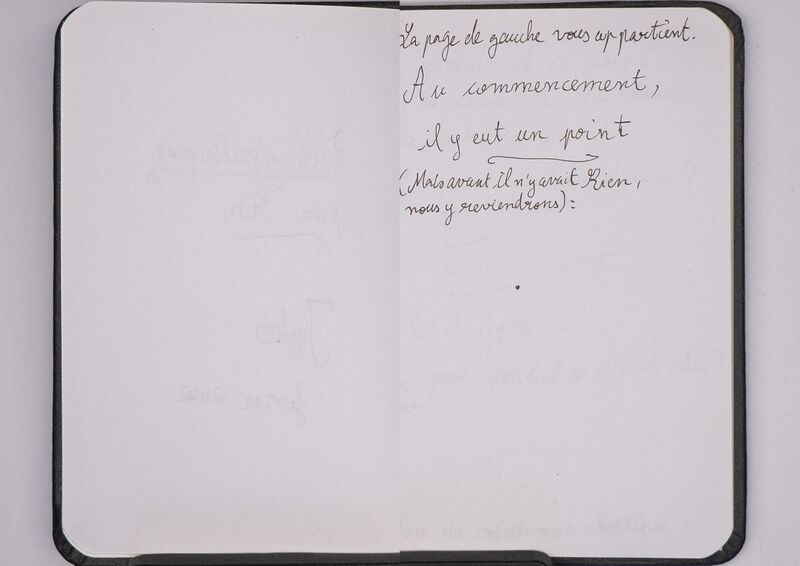 La page de gauche vous appartient.
Au commencement,
il y eut un point
(Mais avant il n'y avait Rien,
nous y reviendrons) :